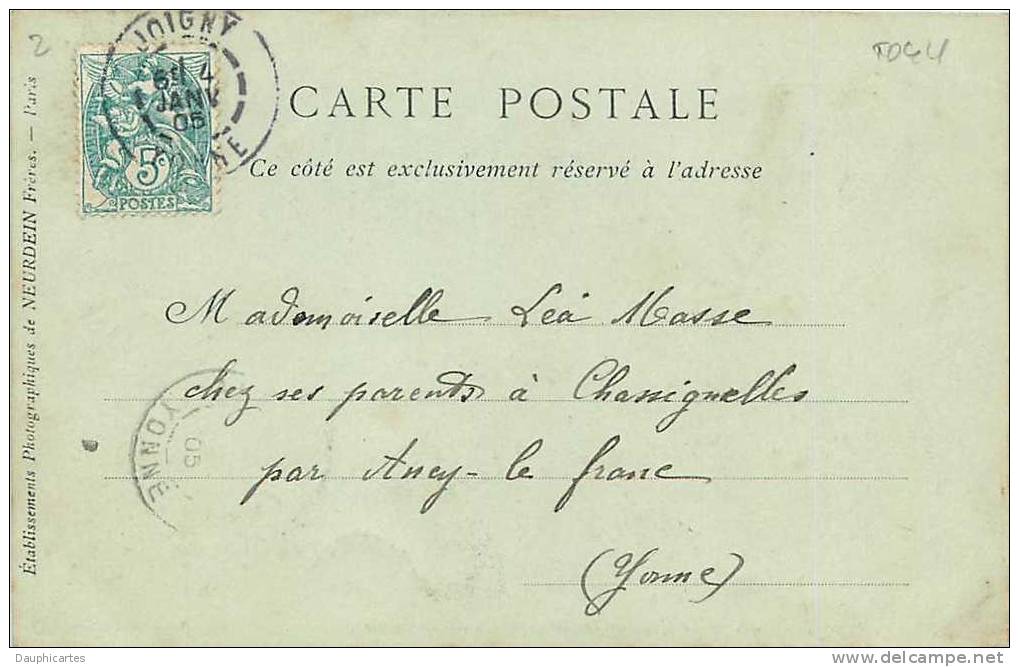 2
JOIGNY
JANV
05
YONNE
5c
POSTES
CARTE POSTALE
Ce côté est exclusivement réservé à l'adresse
Mademoiselle Léa Masse
chez ses parents à Chassignelles
par Ancy-le franc
(Yonne)
YONNE
05
Établissements Photographiques de NEURDEIN Frères. — Paris
Dauphicartes
delcampe.net